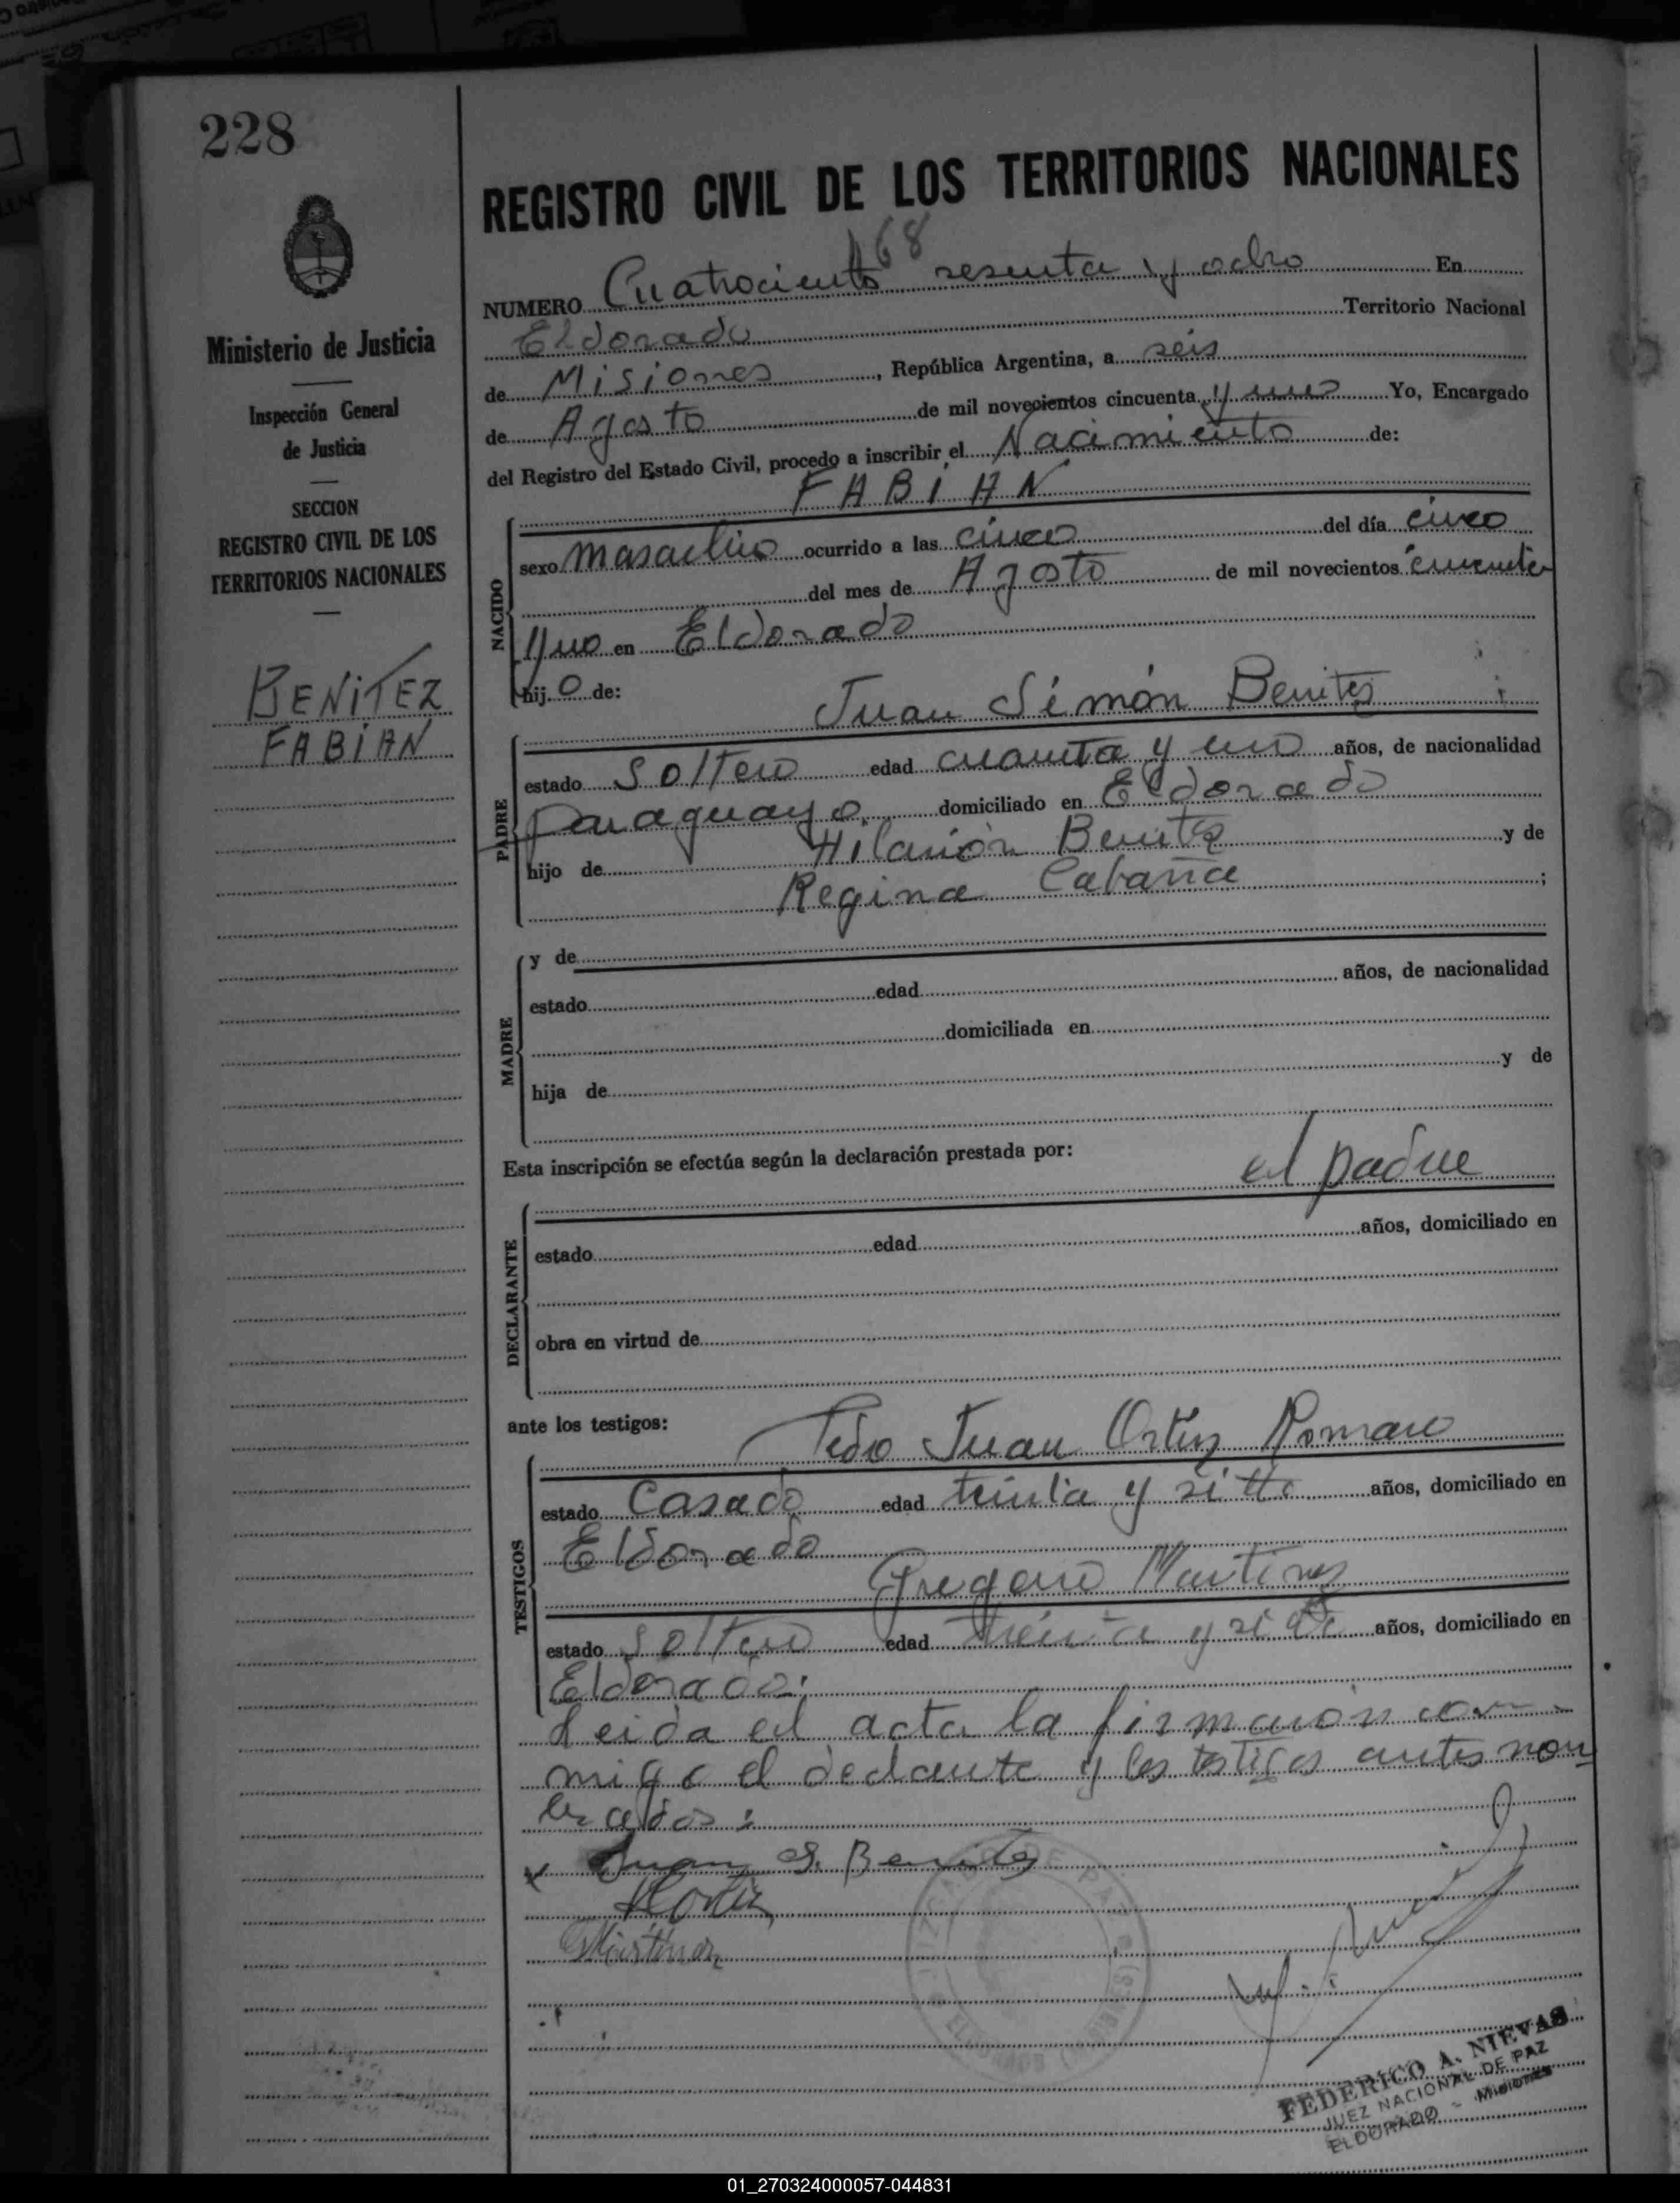 228
REGISTRO CIVIL DE LOS TERRITORIOS NACIONALES
468
NUMERO Cuatrocientos sesenta y ocho En
Eldorado Territorio Nacional
de Misiones, República Argentina, a seis
de Agosto de mil novecientos cincuenta y uno Yo, Encargado
del Registro del Estado Civil, procedo a inscribir el Nacimiento de:
FABIAN
Ministerio de Justicia
Inspección General
de Justicia
SECCION
REGISTRO CIVIL DE LOS
TERRITORIOS NACIONALES
BENITEZ
FABIAN
NACIDO
sexo masculino ocurrido a las cinco del día cinco
del mes de Agosto de mil novecientos cincuenta
y uno en Eldorado
hijo de:
Juan Simón Benitez
PADRE
estado Soltero edad cuarenta y uno años, de nacionalidad
paraguayo domiciliado en Eldorado
hijo de Hilarión Benitez y de
Regina Cabaña ;
MADRE
y de
estado edad años, de nacionalidad
domiciliada en
hija de y de
Esta inscripción se efectúa según la declaración prestada por:
el padre
DECLARANTE
estado edad años, domiciliado en
obra en virtud de
ante los testigos:
Pedro Juan Ortiz Romero
TESTIGOS
estado Casado edad treinta y siete años, domiciliado en
Eldorado
Gregorio Martinez
estado Soltero edad treinta y siete años, domiciliado en
Eldorado.
Leida el acta la firmaron con-
migo el declante y los testigos antes nom
brados:
x Juan S. Benitez
Ortiz
Martinez
FEDERICO A. NIEVAS
JUEZ NACIONAL DE PAZ
ELDORADO - Misiones
01_270324000057-044831